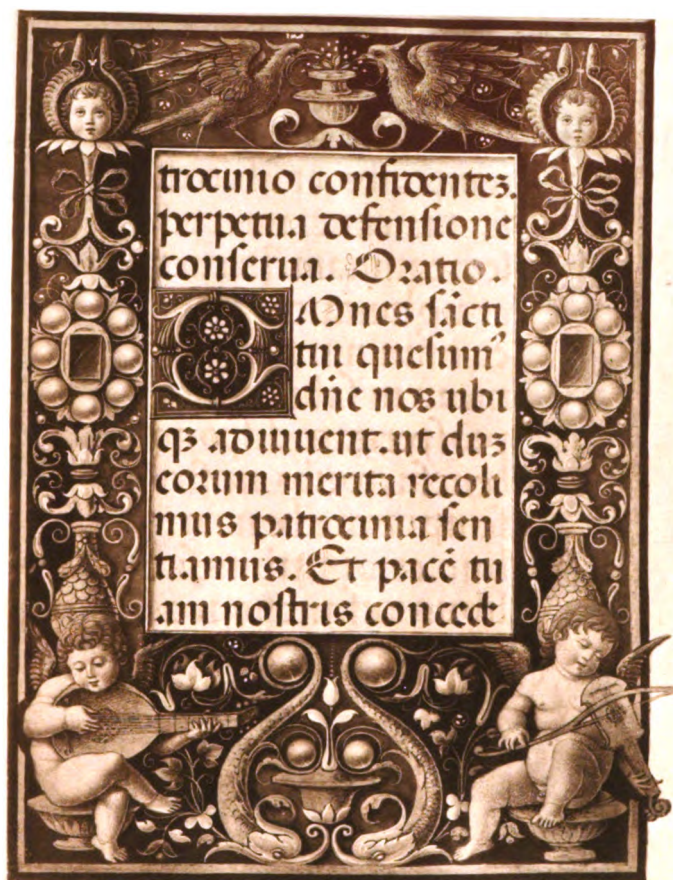 trocinio confidentez.
perpetua defensione
conserua. Oratio.
OMnes sãcti
tui quesum⁹
dñe nos ubi
qz adiuuent. ut duz
eorum merita recoli
mus patrocinia sen
tiamus. Et pacẽ tu
am nostris concede